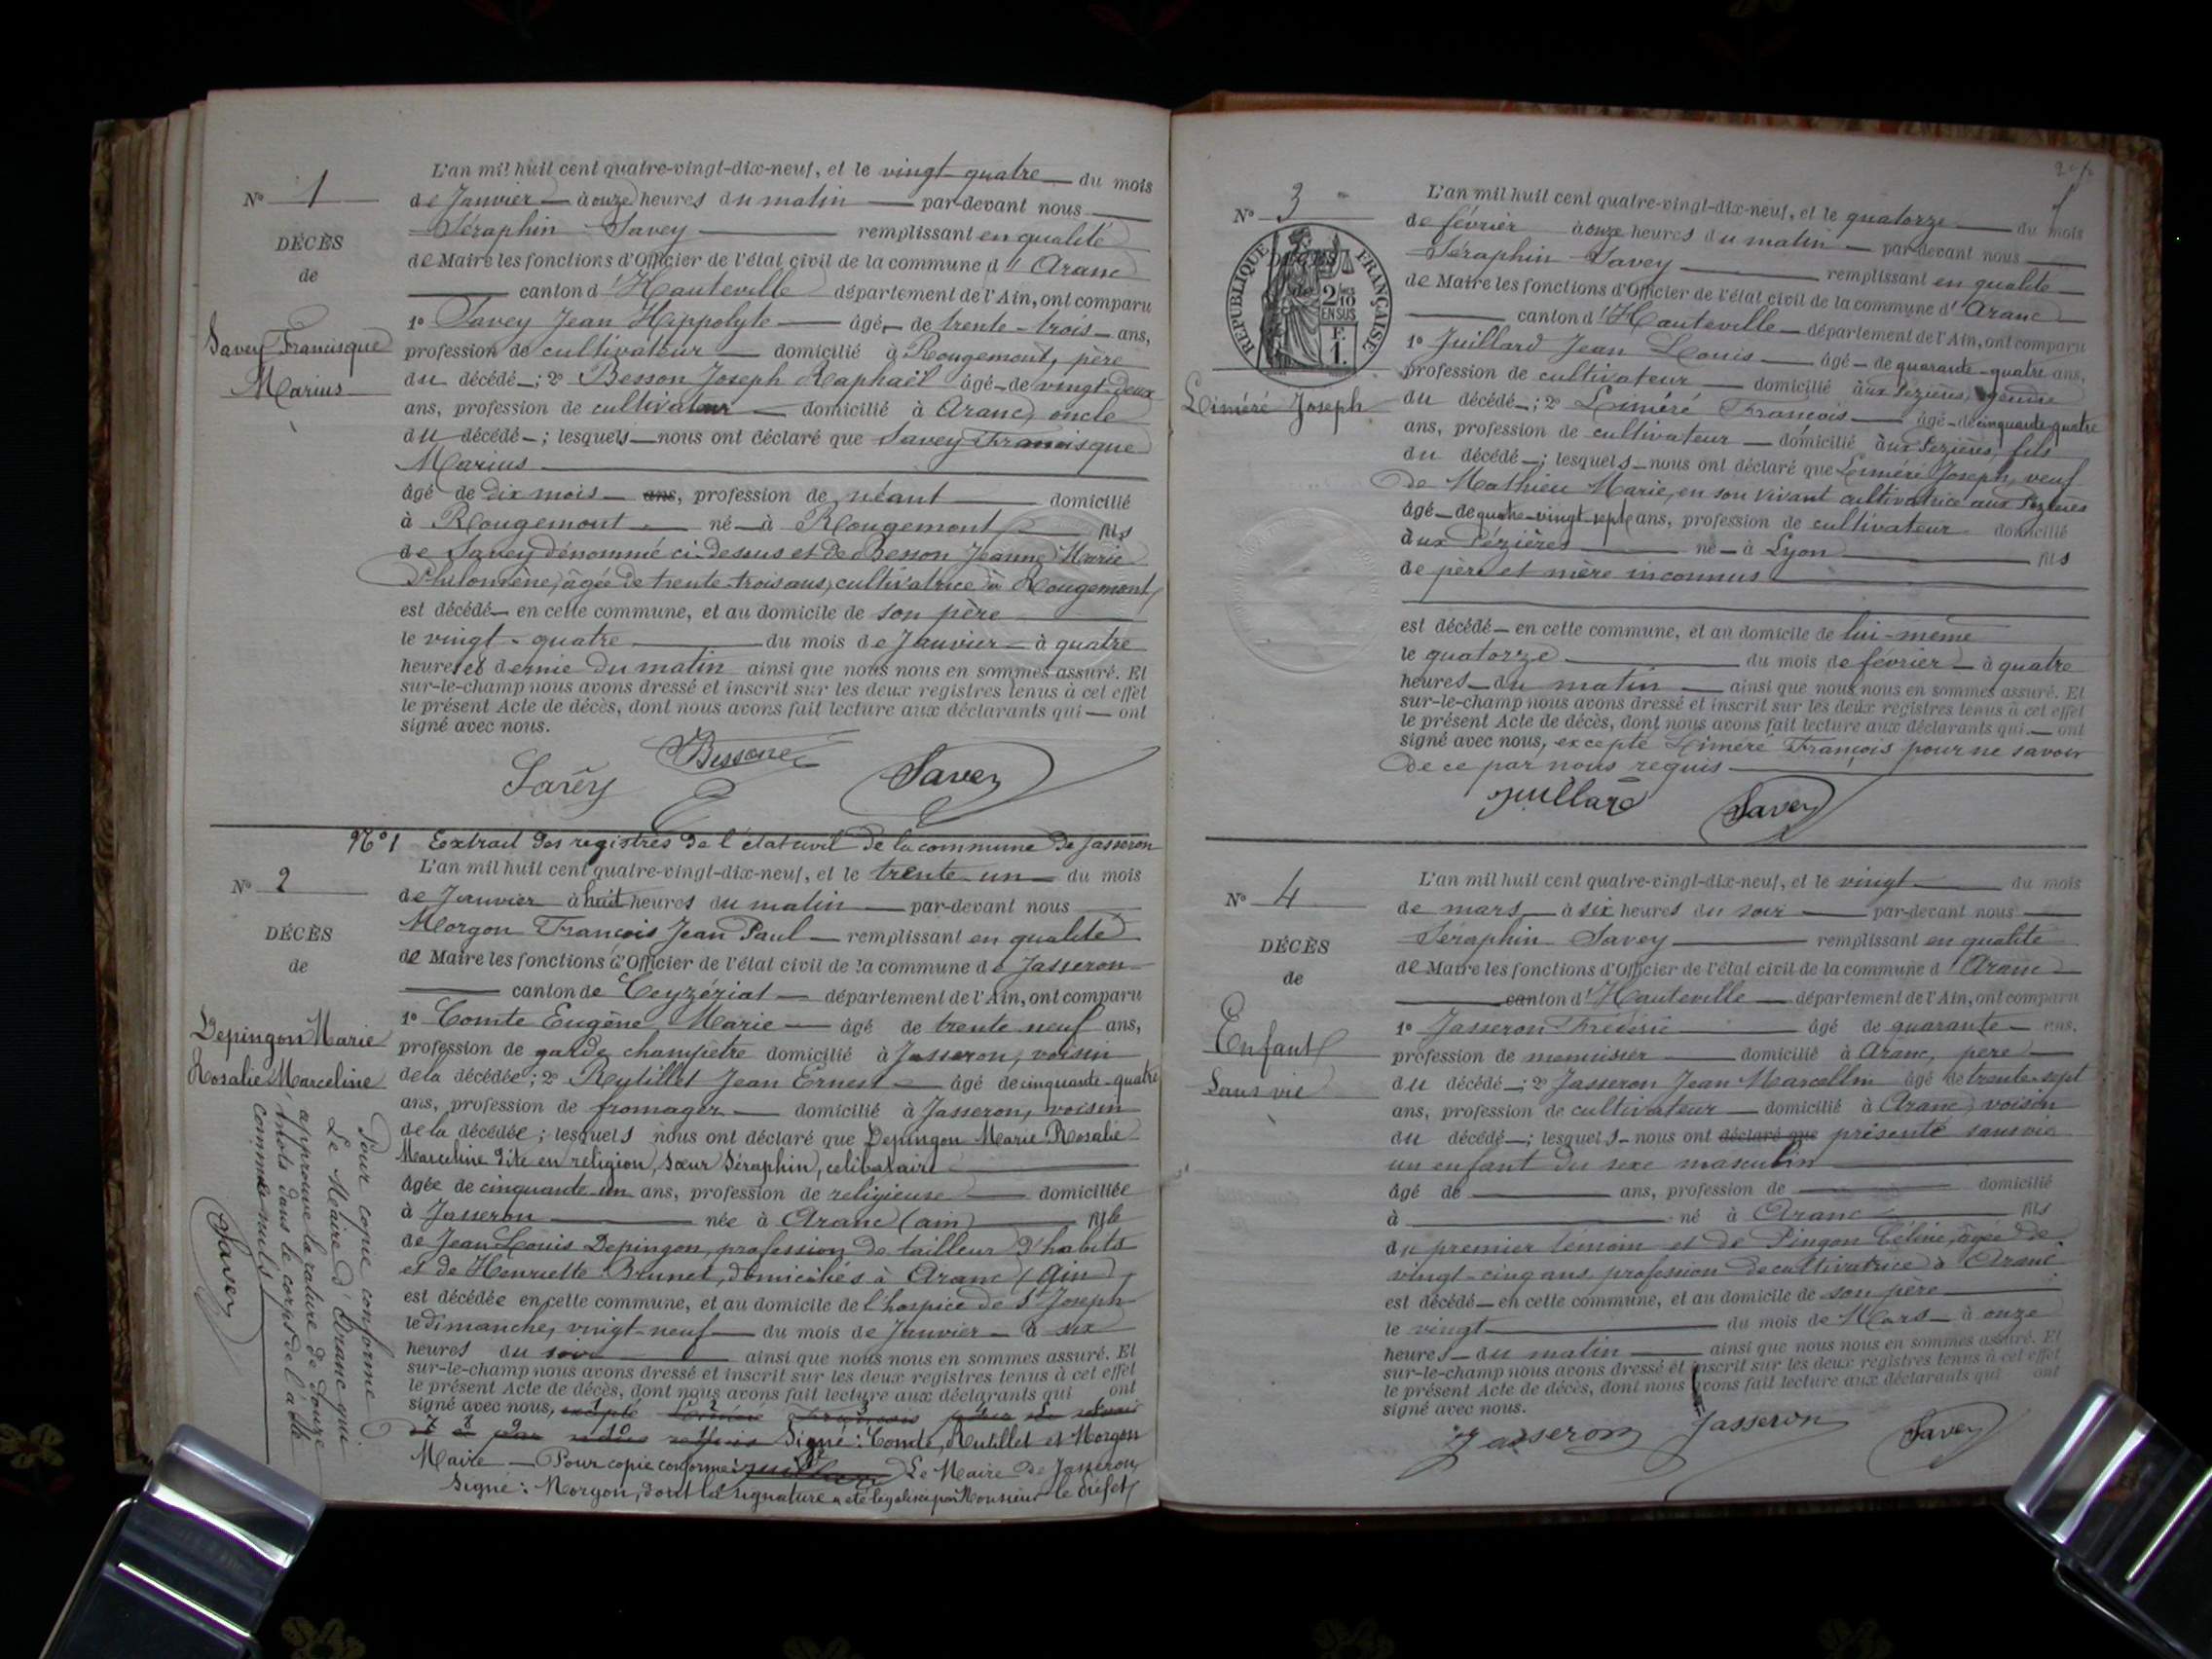 L'an mil huit cent quatre-vingt-dix-neuf, et le vingt-quatre du mois
No 1
de Janvier à onze heures du matin par-devant nous
Séraphin Savey remplissant en qualité
DÉCÈS
de Maire les fonctions d'Officier de l'état civil de la commune d'Aranc
de
canton d'Hauteville département de l'Ain, ont comparu
1o Savey Jean Hippolyte âgé de trente-trois ans,
Savey Francisque
Marius
profession de cultivateur domicilié à Rougemont, père
du décédé ; 2o Besson Joseph Raphaël âgé de vingt-deux
ans, profession de cultivateur domicilié à Aranc, oncle
du décédé ; lesquels nous ont déclaré que Savey Francisque
Marius
âgé de dix mois ans, profession de néant domicilié
à Rougemont né à Rougemont fils
de Savey dénommé ci-dessus et de Besson Jeanne Marie
Philomène, âgée de trente-trois ans, cultivatrice à Rougemont
est décédé en cette commune, et au domicile de son père
le vingt-quatre du mois de Janvier à quatre
heures et demie du matin ainsi que nous nous en sommes assuré. Et
sur-le-champ nous avons dressé et inscrit sur les deux registres tenus à cet effet
le présent Acte de décès, dont nous avons fait lecture aux déclarants qui ont
signé avec nous.
Savey Besson Savey
No 1 Extrait des registres de l'état civil de la commune de Jasseron
L'an mil huit cent quatre-vingt-dix-neuf, et le trente-un du mois
No 2
de Janvier à huit heures du matin par-devant nous
Morgon François Jean Paul remplissant en qualité
DÉCÈS
de Maire les fonctions d'Officier de l'état civil de la commune de Jasseron
de
canton de Ceyzériat département de l'Ain, ont comparu
Depingon Marie
Rosalie Marceline
1o Comte Eugène Marie âgé de trente neuf ans,
profession de garde champêtre domicilié à Jasseron, voisin
de la décédée ; 2o Rutillet Jean Ernest âgé de cinquante-quatre
ans, profession de fromager domicilié à Jasseron, voisin
de la décédée ; lesquels nous ont déclaré que Depingon Marie Rosalie
Marceline dite en religion, Sœur Séraphin, celibataire
âgée de cinquante un ans, profession de religieuse domiciliée
à Jasseron née à Aranc (ain) fille
de Jean Louis Depingon, profession de tailleur d'habits
et de Henriette Brunet, domiciliés à Aranc (Ain)
est décédée en cette commune, et au domicile de l'hospice de St Joseph
le dimanche, vingt-neuf du mois de Janvier à six
heures du soir ainsi que nous nous en sommes assuré. Et
sur-le-champ nous avons dressé et inscrit sur les deux registres tenus à cet effet
le présent Acte de décès, dont nous avons fait lecture aux déclarants qui ont
signé avec nous, excepté Liméré François pour ne savoir
de ce par nous requis Signé : Comte, Rutillet et Morgon
Maire Pour copie conforme Juillard Le Maire de Jasseron,
Signé : Morgon, dont la signature a été légalisée par Monsieur le Préfet
Pour copie conforme
Le Maire d'Aranc qui
approuve la rature de douze
mots dans le corps de l'acte
comme nuls
Savey
L'an mil huit cent quatre-vingt-dix-neuf, et le quatorze du mois
No 3
de février à onze heures du matin par-devant nous
Séraphin Savey remplissant en qualité
DÉCÈS
de
RÉPUBLIQUE FRANÇAISE
2/10
EN SUS
F.
1.
de Maire les fonctions d'Officier de l'état civil de la commune d'Aranc
canton d'Hauteville département de l'Ain, ont comparu
1o Juillard Jean Louis âgé de quarante-quatre ans,
profession de cultivateur domicilié aux Pézières, gendre
Liméré Joseph
du décédé ; 2o Liméré François âgé de cinquante-quatre
ans, profession de cultivateur domicilié aux Pézières, fils
du décédé ; lesquels nous ont déclaré que Liméré Joseph, veuf
de Mathieu Marie, en son vivant cultivatrice aux Pézières
âgé de quatre-vingt-sept ans, profession de cultivateur domicilié
aux Pézières né à Lyon fils
de père et mère inconnus
est décédé en cette commune, et au domicile de lui-même
le quatorze du mois de février à quatre
heures du matin ainsi que nous nous en sommes assuré. Et
sur-le-champ nous avons dressé et inscrit sur les deux registres tenus à cet effet
le présent Acte de décès, dont nous avons fait lecture aux déclarants qui ont
signé avec nous, excepté Liméré François pour ne savoir
de ce par nous requis
Juillard Savey
L'an mil huit cent quatre-vingt-dix-neuf, et le vingt du mois
No 4
de mars à six heures du soir par-devant nous
Séraphin Savey remplissant en qualité
DÉCÈS
de Maire les fonctions d'Officier de l'état civil de la commune d'Aranc
de
canton d'Hauteville département de l'Ain, ont comparu
1o Jasseron Frédéric âgé de quarante ans,
Enfant
Sans vie
profession de menuisier domicilié à Aranc, père
du décédé ; 2o Jasseron Jean Marcellin âgé de trente-sept
ans, profession de cultivateur domicilié à Aranc, voisin
du décédé ; lesquels nous ont déclaré que présenté sans vie
un enfant du sexe masculin
âgé de ans, profession de domicilié
à né à Aranc fils
du premier témoin et de Pingon Céline, âgée de
vingt-cinq ans profession de cultivatrice à Aranc
est décédé en cette commune, et au domicile de son père
le vingt du mois de Mars à onze
heures du matin ainsi que nous nous en sommes assuré. Et
sur-le-champ nous avons dressé et inscrit sur les deux registres tenus à cet effet
le présent Acte de décès, dont nous avons fait lecture aux déclarants qui ont
signé avec nous.
Jasseron Jasseron Savey